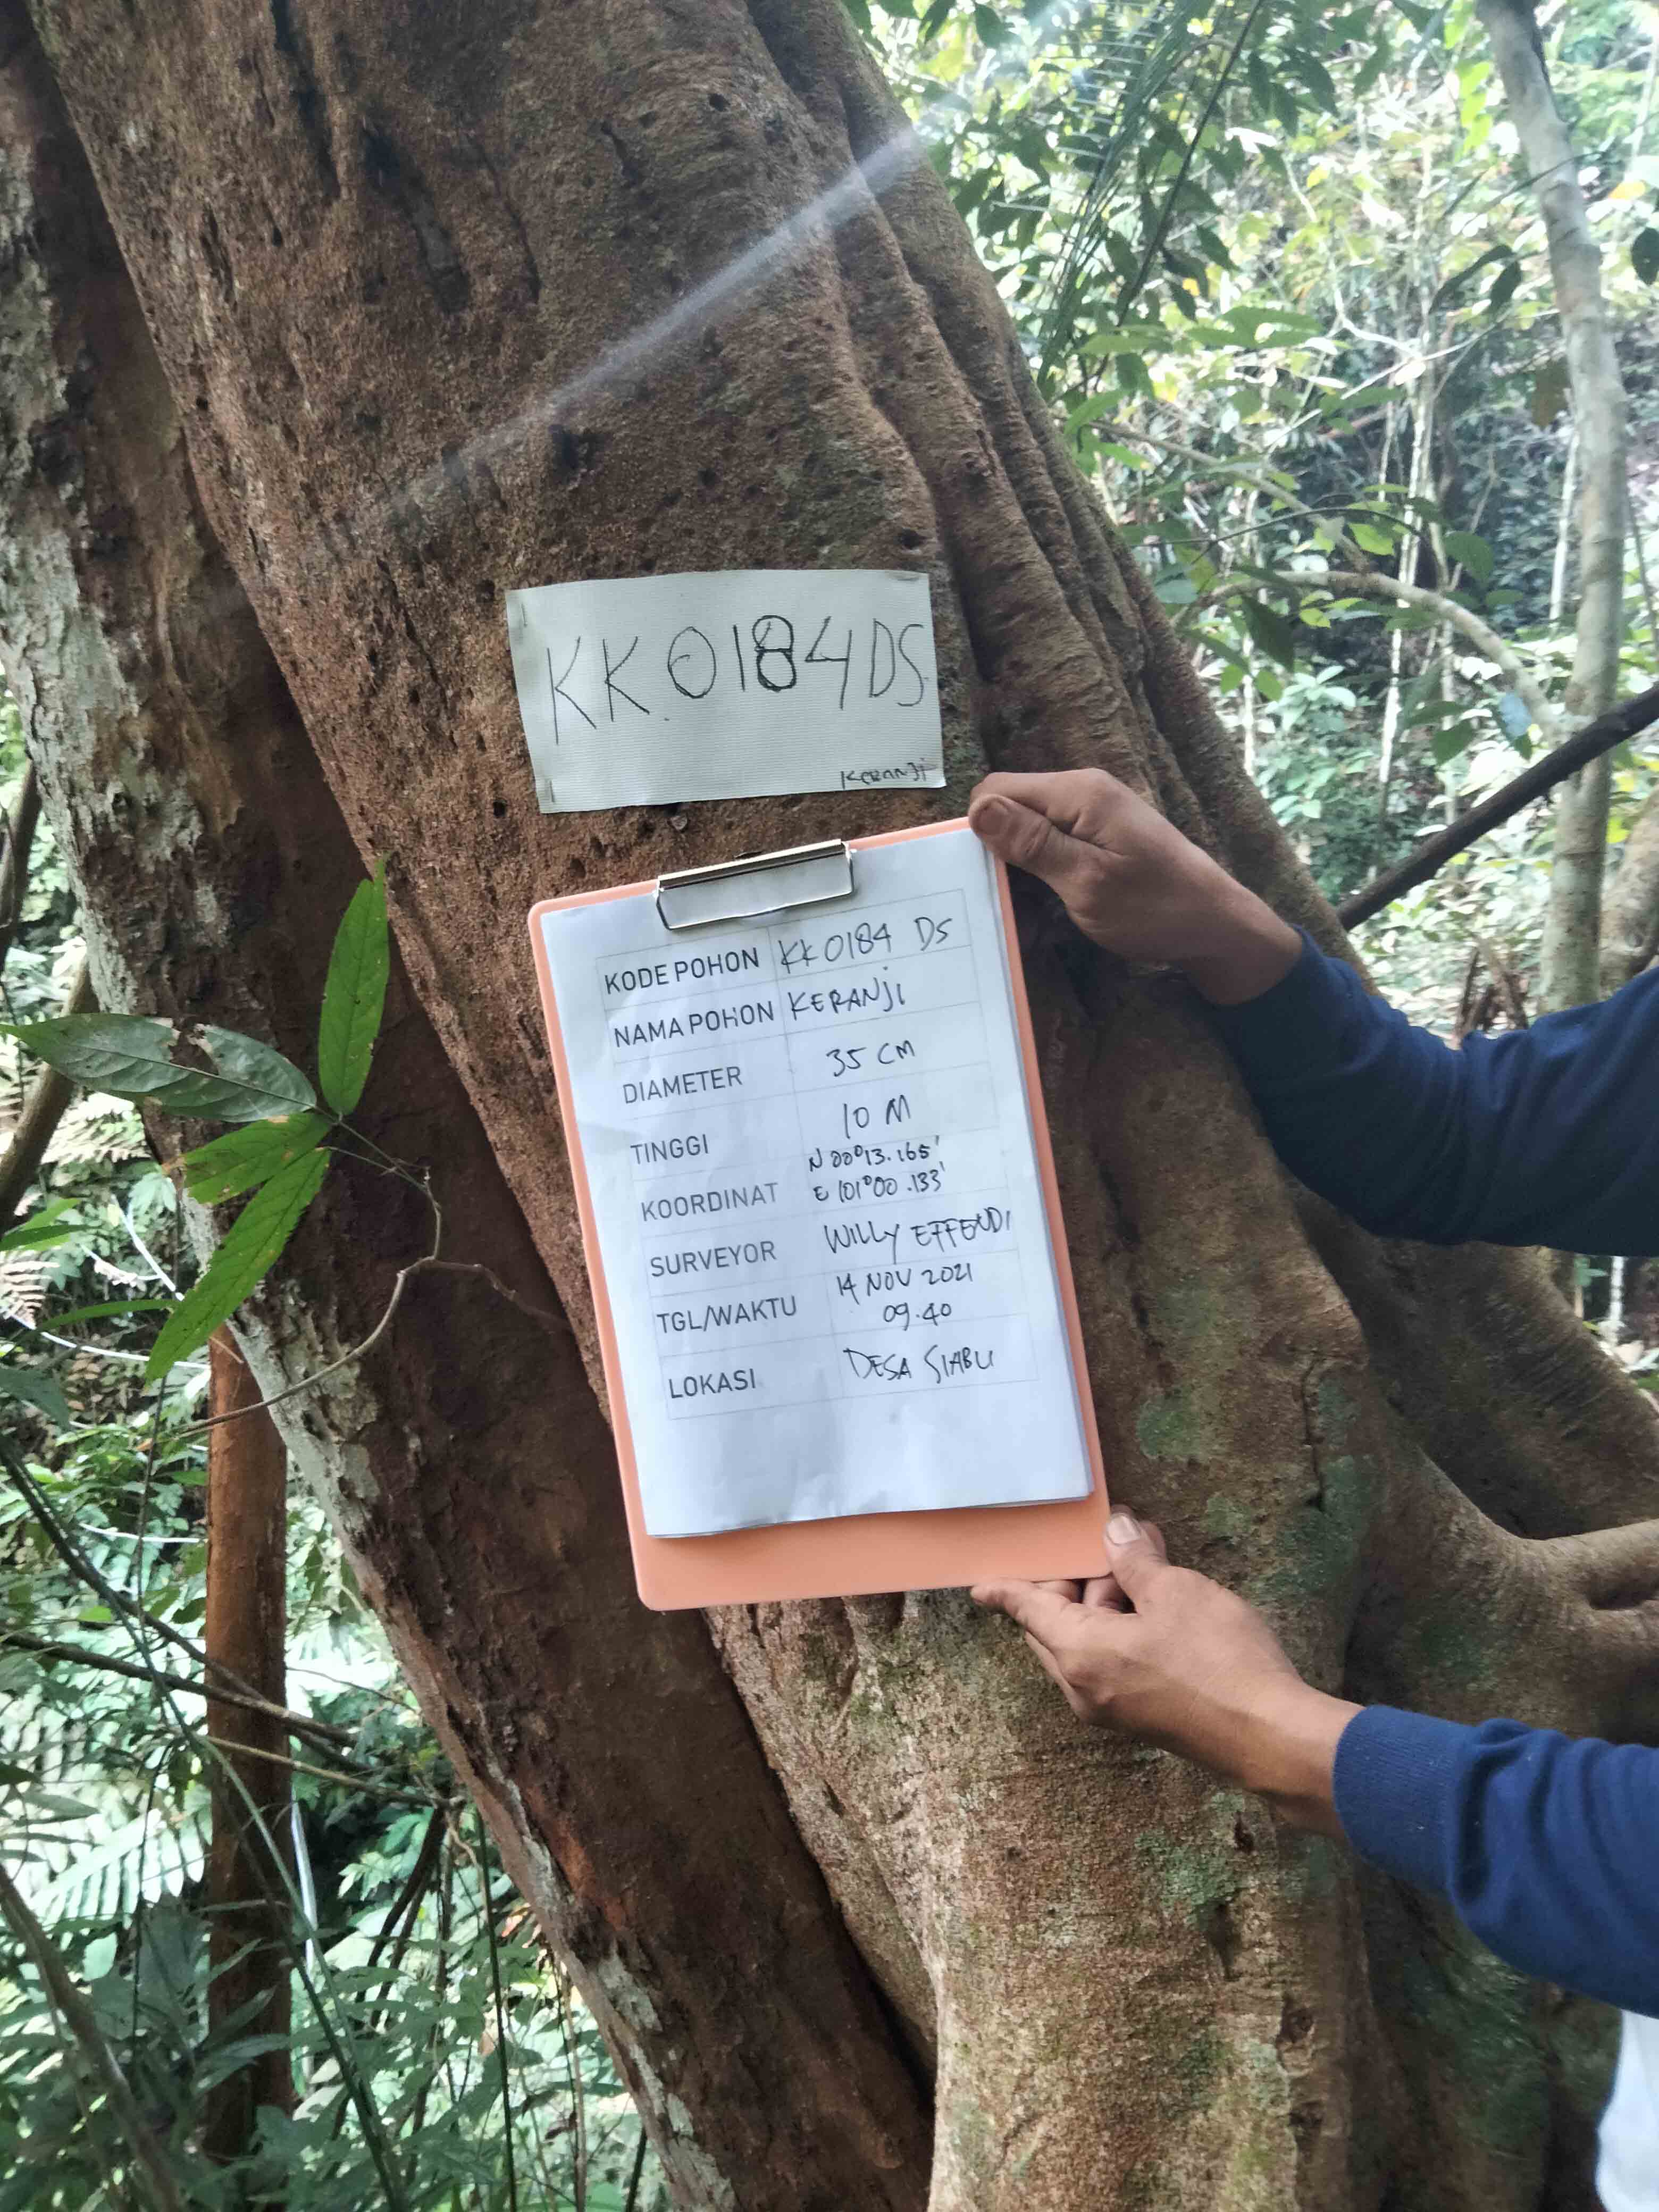 KK.0184DS
KERANJI
KODE POHON KK0184 DS
NAMA POHON KERANJI
DIAMETER 35 CM
TINGGI 10 M
KOORDINAT N 00°13.165'
E 101°00.133'
SURVEYOR WILLY EFFENDI
TGL/WAKTU 14 NOV 2021
09.40
LOKASI DESA SIABU